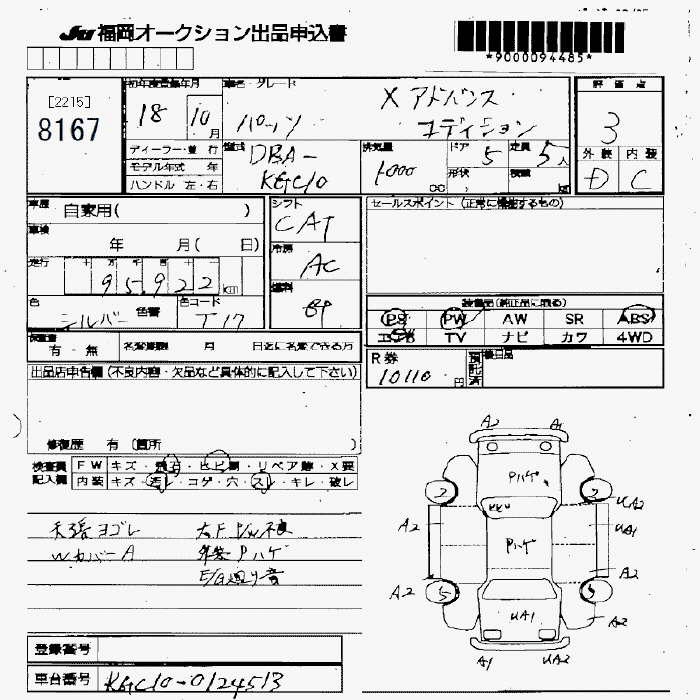 JU 福岡オークション出品申込書
*9000094485*
[2215]
8167
初年検査登録年月
18 10月
車名・グレード
パッソ
X アドバンス
エディション
評価点
3
外装 内装
D C
ディーラー・並行
モデル年式 年
ハンドル 左・右
型式
DBA-
KGC10
排気量
1000
cc
ドア 5
形状
定員 5人
積載
kg
車歴
自家用( )
車検
年 月( 日)
走行 十 万 千 百 十 一
95,922 km
色
シルバー 色番
色コード
T17
シフト
CAT
冷房
AC
燃料
セールスポイント (正常に機能するもの)
装備品(純正品に限る)
PS PW AW SR ABS
エアB TV ナビ カワ 4WD
有・無 名変期限 月 日迄に名変できる方
R券
10110円
預託済
後日品
出品店申告欄 (不良内容・欠品など具体的に記入して下さい)
修復歴 有 (箇所 )
検査員
記入欄
FW キズ・飛石・ヒビ割・リペア跡・X要
内装 キズ・汚レ・コゲ・穴・スレ・キレ・破レ
天張ヨゴレ
WカバーA 外装Pハゲ
E/G廻り音
A2 A1
Pハゲ
2 2
UA2
A2 UA1
Pハゲ
A2
A2 5 5
UA1 A2
A1 UA2
登録番号
車台番号 KGC10-0124513